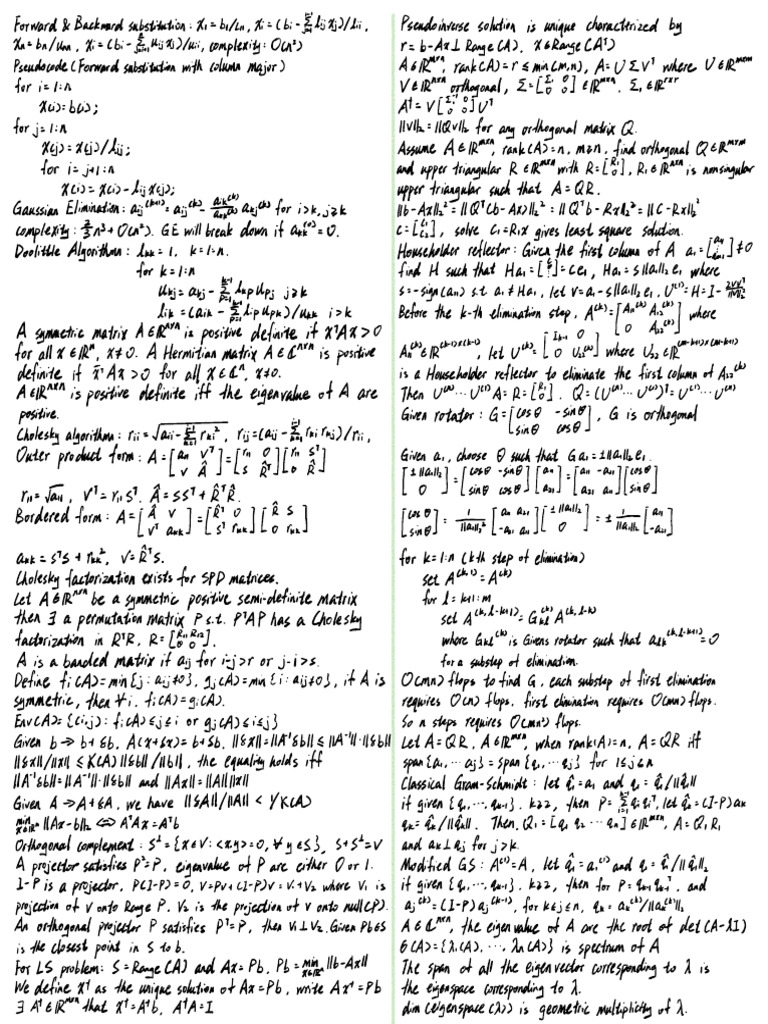 Forward & Backward substitution: x₁ = b₁/l₁₁, xᵢ = (bᵢ - Σⱼ₌₁ⁱ⁻¹ lᵢⱼxⱼ)/lᵢᵢ,
xₙ = bₙ/uₙₙ, xᵢ = (bᵢ - Σ uᵢⱼxⱼ)/uᵢᵢ, complexity: O(n²)
Pseudocode (Forward substitution with column major)
for i = 1:n
x(i) = b(i);
for j = 1:n
x(j) = x(j)/lⱼⱼ;
for i = j+1:n
x(i) = x(i) - lᵢⱼx(j);
Gaussian Elimination: aᵢⱼ⁽ᵏ⁺¹⁾ = aᵢⱼ⁽ᵏ⁾ - aᵢₖ⁽ᵏ⁾/aₖₖ⁽ᵏ⁾ aₖⱼ⁽ᵏ⁾ for i>k, j≥k
complexity: ⅔n³ + O(n²). GE will break down if aₖₖ⁽ᵏ⁾ = 0.
Doolittle Algorithm: lₖₖ = 1, k = 1:n.
for k = 1:n
uₖⱼ = aₖⱼ - Σₚ₌₁ᵏ⁻¹ lₖₚuₚⱼ j≥k
lᵢₖ = (aᵢₖ - Σₚ₌₁ᵏ⁻¹ lᵢₚuₚₖ)/uₖₖ i>k
A symmetric matrix A∈ℝⁿˣⁿ is positive definite if xᵀAx > 0
for all x∈ℝⁿ, x≠0. A Hermitian matrix A∈ℂⁿˣⁿ is positive
definite if x̄ᵀAx > 0 for all x∈ℂⁿ, x≠0.
A∈ℝⁿˣⁿ is positive definite iff the eigenvalue of A are
positive.
Cholesky algorithm: rᵢᵢ = √(aᵢᵢ - Σₖ₌₁ⁱ⁻¹ rₖᵢ²), rᵢⱼ = (aᵢⱼ - Σₖ₌₁ⁱ⁻¹ rₖᵢrₖⱼ)/rᵢᵢ,
Outer product form: A = [a₁₁ vᵀ; v Â] = [r₁₁ 0; s R̂ᵀ][r₁₁ sᵀ; 0 R̂]
r₁₁ = √a₁₁, vᵀ = r₁₁sᵀ. Â = ssᵀ + R̂ᵀR̂.
Bordered form: A = [Â v; vᵀ aₖₖ] = [R̂ᵀ 0; sᵀ rₖₖ][R̂ s; 0 rₖₖ]
aₖₖ = sᵀs + rₖₖ², v = R̂ᵀs.
Cholesky factorization exists for SPD matrices.
Let A∈ℝⁿˣⁿ be a symmetric positive semi-definite matrix
then ∃ a permutation matrix P s.t. PᵀAP has a Cholesky
factorization in RᵀR, R = [R₁₁ R₁₂; 0 0].
A is a banded matrix if aᵢⱼ for i-j>r or j-i>s.
Define fᵢ(A) = min{j: aᵢⱼ≠0}, gⱼ(A) = min{i: aᵢⱼ≠0}, if A is
symmetric, then ∀i, fᵢ(A) = gᵢ(A).
Env(A) = {(i,j): fᵢ(A)≤j≤i or gⱼ(A)≤i≤j}
Given b → b+δb, A(x+δx) = b+δb, ||δx|| = ||A⁻¹δb|| ≤ ||A⁻¹||·||δb||
||δx||/||x|| ≤ K(A) ||δb||/||b||, the equality holds iff
||A⁻¹δb|| = ||A⁻¹||·||δb|| and ||Ax|| = ||A||||x||
Given A → A+δA, we have ||δA||/||A|| < 1/K(A)
min x∈ℝⁿ ||Ax-b||₂ ⇔ AᵀAx = Aᵀb
Orthogonal complement: S⊥ = {x∈V: <x,y> = 0, ∀y∈S}, S+S⊥ = V
A projector satisfies P² = P, eigenvalue of P are either 0 or 1.
I-P is a projector, P(I-P) = 0, v = Pv+(I-P)v = v₁+v₂ where v₁ is
projection of v onto Range P. v₂ is the projection of v onto null(P).
An orthogonal projector P satisfies Pᵀ = P, then v₁⊥v₂. Given Pb∈S
is the closest point in S to b.
For LS problem: S = Range(A) and Ax = Pb, Pb = min x∈ℝⁿ ||b-Ax||
We define x† as the unique solution of Ax = Pb, write Ax† = Pb
∃ A†∈ℝⁿˣᵐ that x† = A†b, A†A = I
Pseudoinverse solution is unique characterized by
r = b-Ax ⊥ Range(A), x∈Range(Aᵀ)
A∈ℝᵐˣⁿ, rank(A) = r ≤ min(m,n), A = UΣVᵀ where U∈ℝᵐˣᵐ
V∈ℝⁿˣⁿ orthogonal, Σ = [Σ₁ 0; 0 0]∈ℝᵐˣⁿ. Σ₁∈ℝʳˣʳ
A† = V[Σ₁⁻¹ 0; 0 0]Uᵀ
||v||₂ = ||Qv||₂ for any orthogonal matrix Q.
Assume A∈ℝᵐˣⁿ, rank(A) = n, m≥n, find orthogonal Q∈ℝᵐˣᵐ
and upper triangular R∈ℝᵐˣⁿ with R = [R₁; 0], R₁∈ℝⁿˣⁿ is nonsingular
upper triangular such that A = QR.
||b-Ax||₂² = ||Qᵀ(b-Ax)||₂² = ||Qᵀb-Rx||₂² = ||C-Rx||₂²
c = [c₁; c₂], solve c₁ = R₁x gives least square solution.
Householder reflector: Given the first column of A a₁ = [a₁₁; ⋮; aₘ₁] ≠ 0
find H such that Ha₁ = [c; ⋮] = ce₁, Ha₁ = s||a₁||₂e₁ where
s = -sign(a₁₁) s.t a₁≠Ha₁, let v = a₁-s||a₁||₂e₁, U⁽¹⁾ = H = I - 2vvᵀ/||v||₂²
Before the k-th elimination step, A⁽ᵏ⁾ = [A₁₁⁽ᵏ⁾ A₁₂⁽ᵏ⁾; 0 A₂₂⁽ᵏ⁾] where
A₁₁⁽ᵏ⁾∈ℝ⁽ᵏ⁻¹⁾ˣ⁽ᵏ⁻¹⁾, let U⁽ᵏ⁾ = [Iₖ₋₁ 0; 0 U₂₂⁽ᵏ⁾] where U₂₂∈ℝ⁽ᵐ⁻ᵏ⁺¹⁾ˣ⁽ᵐ⁻ᵏ⁺¹⁾
is a Householder reflector to eliminate the first column of A₂₂⁽ᵏ⁾
Then U⁽ⁿ⁾···U⁽¹⁾A = R = [R₁; 0]. Q = (U⁽ⁿ⁾···U⁽¹⁾)ᵀ = U⁽¹⁾···U⁽ⁿ⁾
Given rotator: G = [cosθ -sinθ; sinθ cosθ], G is orthogonal
Given a₁, choose θ such that Ga₁ = ±||a₁||₂e₁.
[±||a₁||₂; 0] = [cosθ -sinθ; sinθ cosθ][a₁₁; a₂₁] = [a₁₁ -a₂₁; a₂₁ a₁₁][cosθ; sinθ]
[cosθ; sinθ] = 1/||a₁||₂² [a₁₁ a₂₁; -a₂₁ a₁₁][±||a₁||₂; 0] = ± 1/||a₁||₂ [a₁₁; -a₂₁]
for k = 1:n (kth step of elimination)
set A⁽ᵏ'¹⁾ = A⁽ᵏ⁾
for l = k+1:m
set A⁽ᵏ'ˡ⁻ᵏ⁺¹⁾ = Gₖₗ⁽ᵏ⁾A⁽ᵏ'ˡ⁻ᵏ⁾
where Gₖₗ⁽ᵏ⁾ is Givens rotator such that aₗₖ⁽ᵏ'ˡ⁻ᵏ⁺¹⁾ = 0
for a substep of elimination.
O(mn) flops to find G, each substep of first elimination
requires O(n) flops, first elimination requires O(mn) flops.
So n steps requires O(mn²) flops.
Let A = QR, A∈ℝᵐˣⁿ, when rank(A) = n, A = QR iff
span{a₁,···,aⱼ} = span{q₁,···,qⱼ} for 1≤j≤n
Classical Gram-Schmidt: let q̂₁ = a₁ and q₁ = q̂₁/||q̂₁||
if given {q₁,···,qₖ₋₁}. k≥2, then P = Σᵢ₌₁ᵏ⁻¹ qᵢqᵢᵀ, let q̂ₖ = (I-P)aₖ
qₖ = q̂ₖ/||q̂ₖ||. Then, Q₁ = [q₁ q₂ ··· qₙ]∈ℝᵐˣⁿ, A = Q₁R₁
and aₖ⊥qⱼ for j>k.
Modified GS: A⁽¹⁾ = A, let q̂₁ = a₁⁽¹⁾ and q₁ = q̂₁/||q̂₁||₂
if given {q₁,···,qₖ₋₁}. k≥2, then for P = qₖ₋₁qₖ₋₁ᵀ, and
aⱼ⁽ᵏ⁾ = (I-P)aⱼ⁽ᵏ⁻¹⁾, for k≤j≤n, qₖ = aₖ⁽ᵏ⁾/||aₖ⁽ᵏ⁾||₂
A∈ℂⁿˣⁿ, the eigenvalue of A are the root of det(A-λI)
6(A) = {λ₁(A),···,λₙ(A)} is spectrum of A
The span of all the eigenvector corresponding to λ is
the eigenspace corresponding to λ.
dim(eigenspace(λ)) is geometric multiplicity of λ.